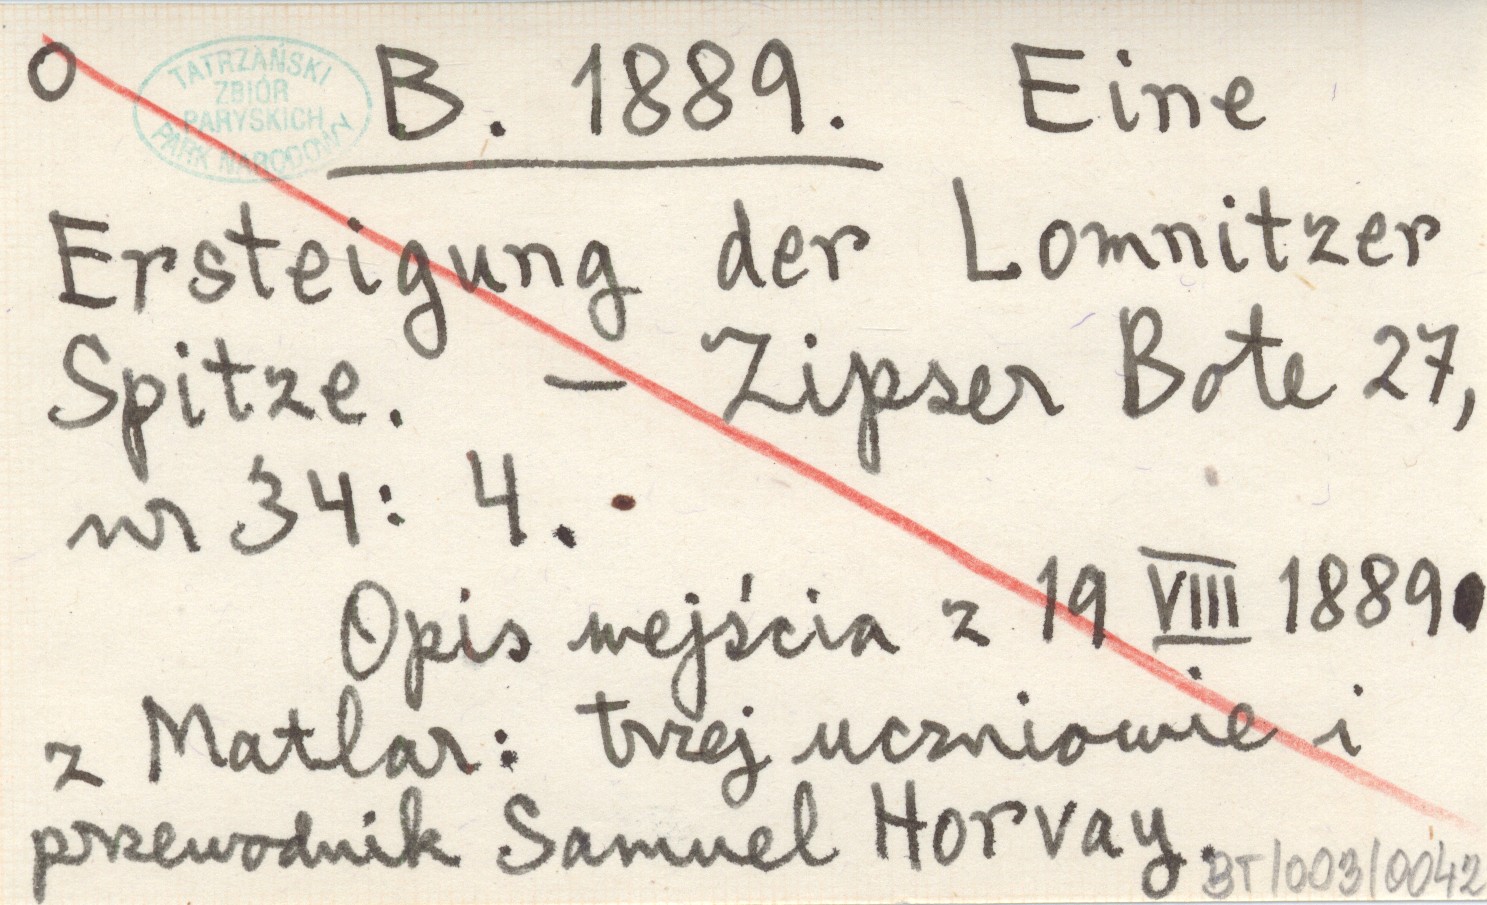 O B. 1889. Eine
TATRZAŃSKI
ZBIÓR
PARYSKICH
PARK NARODOWY
Ersteigung der Lomnitzer
Spitze. – Zipser Bote 27,
nr 34: 4.
Opis wejścia z 19 VIII 1889
z Matlar: trzej uczniowie i
przewodnik Samuel Horvay.
BT/003/0042